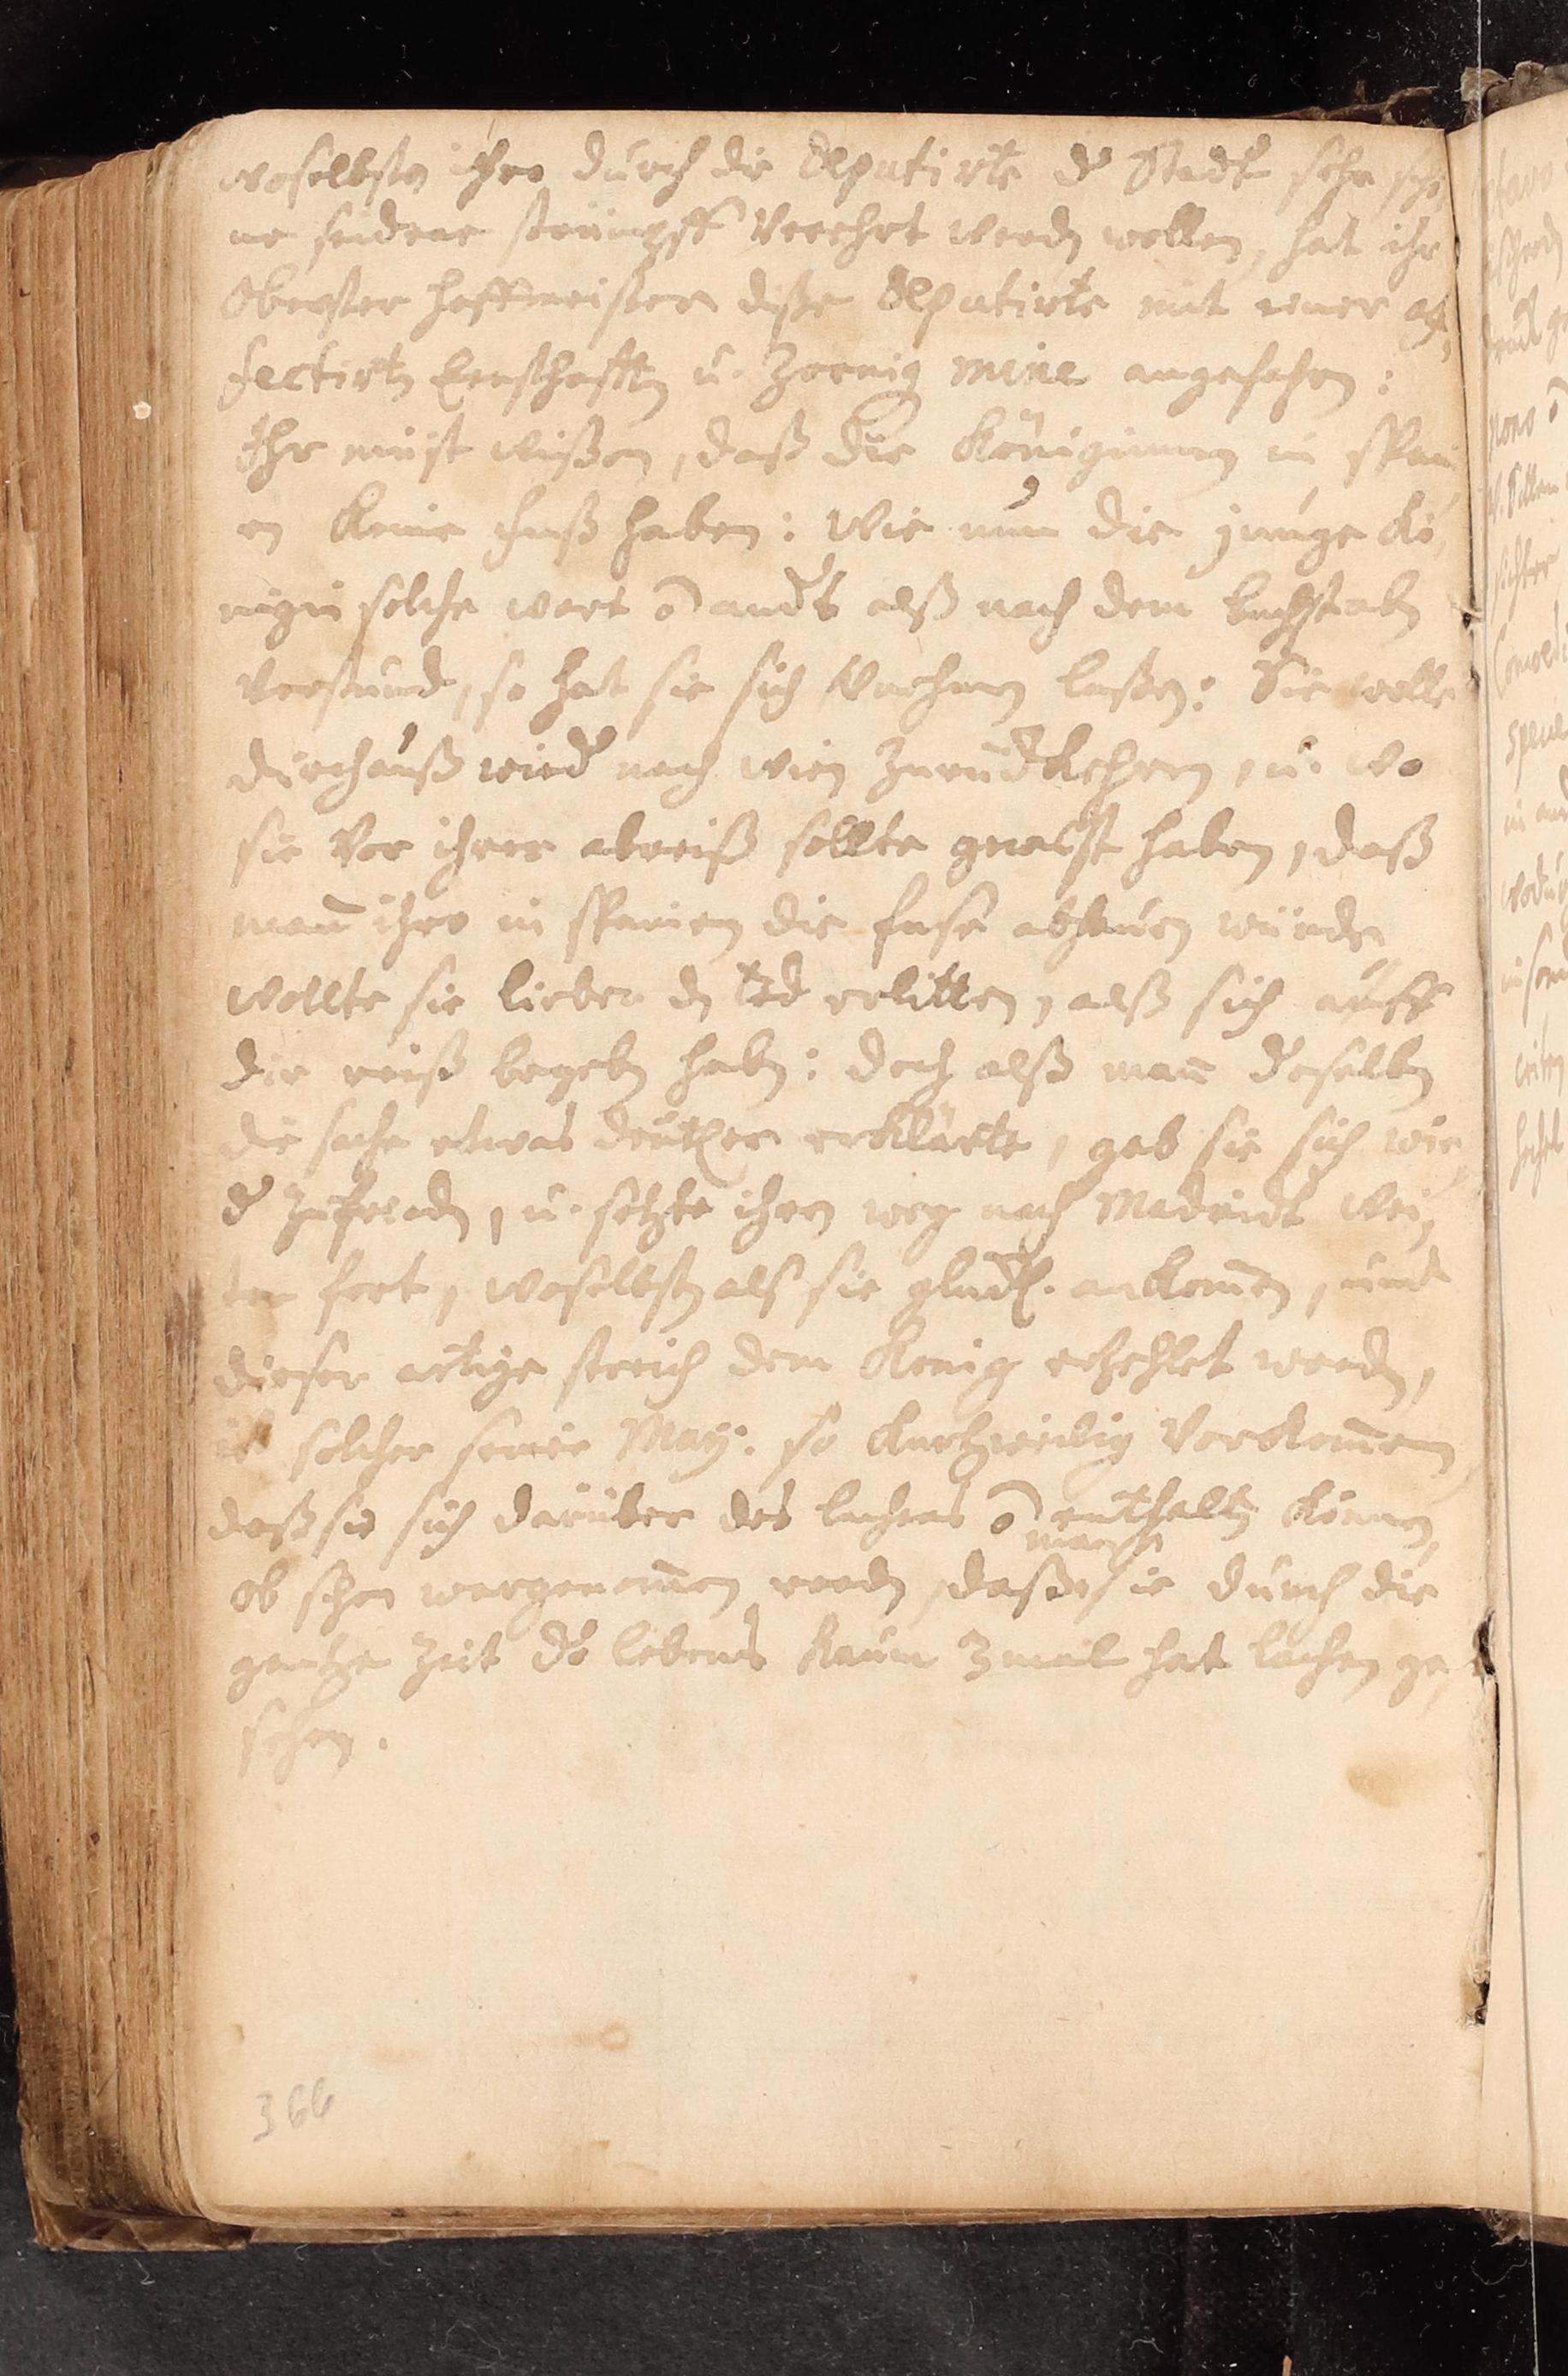 woselbsten ihro durch die Deputirte d' Stadt sehr schö,
ne seidene strümpff verehrt werdn wollen, hat ihr
Obrister hoffmeister diße Deputirte mit einer af,
fectirtn Ernsthafftn u. Zornig mine angesehen:
Ihr müst wißen, daß die Königinnen in span
en keine füeß haben: Wie nun die junge Kö,
nigin solche wort ō and's alß nach dem buchstabn
verstund, so hat sie sich vernehmen laßen: Sie wolle
durchauß wied' nach wien Zuruckkehren, u. wo
sie vor ihrer abreiß sollte gewust haben, daß
mañ ihro in spanien die füse abhauen würde,
wollte sie lieber dn tod erlitten, alß sich auff
die reiß begebn habn: doch alß mañ d'selben
die sache etwas deutlicher erklärte, gab sie sich wie,
d' zufriedn, u. setzte ihren weg nach Madridt wei,
ter fort, woselbstn als sie glückl. ankom̄en, und
dieser artige streich dem König erzehlet wordn,
ist solcher seine May: so kurtzweilig vorkom̄en,
daß sie sich darüber des lachens ō enthaltn können,
ob schon wargenom̄en wordn, daß man sie durch die
gantze Zeit ds lebens kaum 3 mal hat lachen ge,
sehen.
366